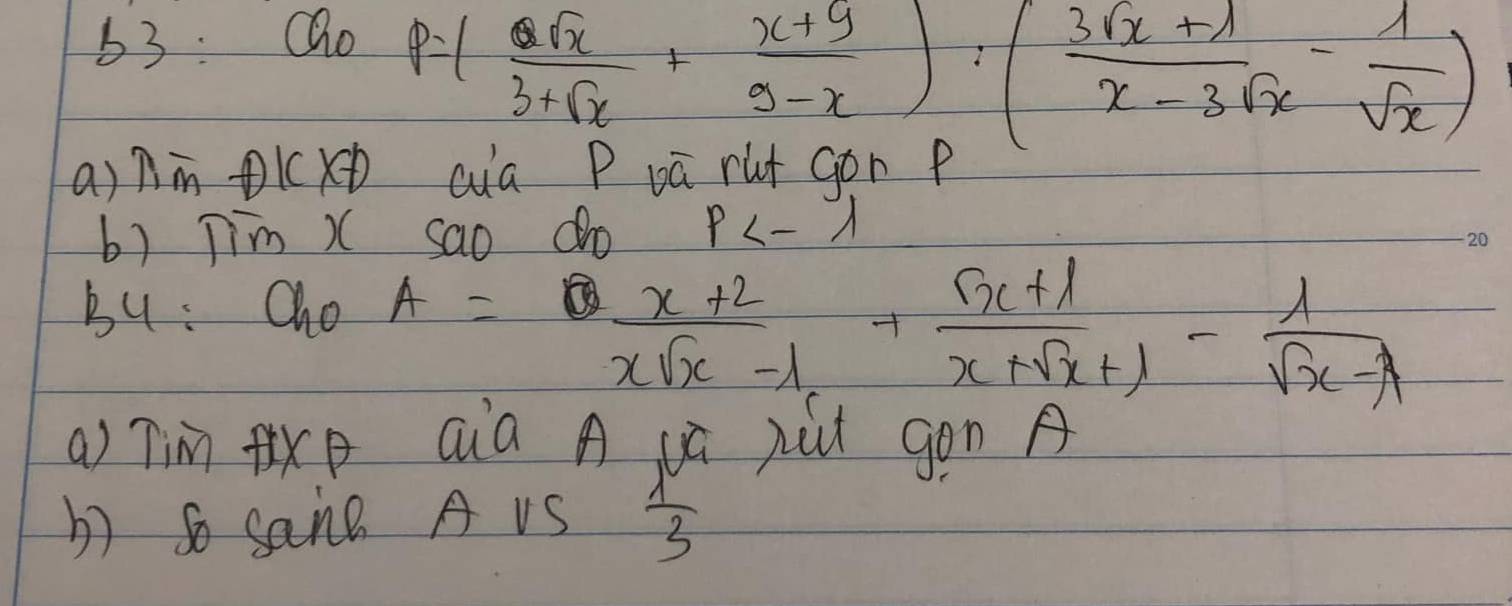 b3: Cho P=(√x/(3+√x) + (x+9)/(9-x)) : ((3√x+1)/(x-3√x) - 1/√x)
a) Tìm ĐKXĐ của P và rút gọn P
b) Tìm x sao cho P<-1
20
b4: Cho A = (x+2)/(x√x-1) + (√x+1)/(x+√x+1) - 1/(√x-1)
a) Tìm ĐXĐ của A và rút gọn A
b) So sánh A vs 1/3